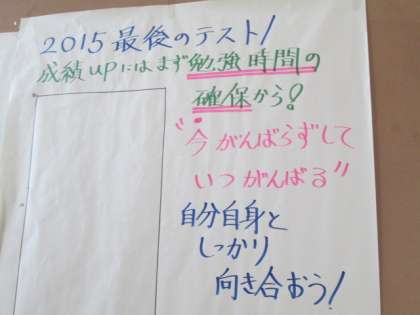 2015最後のテスト!
成績upにはまず勉強時間の
確保から!
"今がんばらずして
いつがんばる"
自分自身と
しっかり
向き合おう!